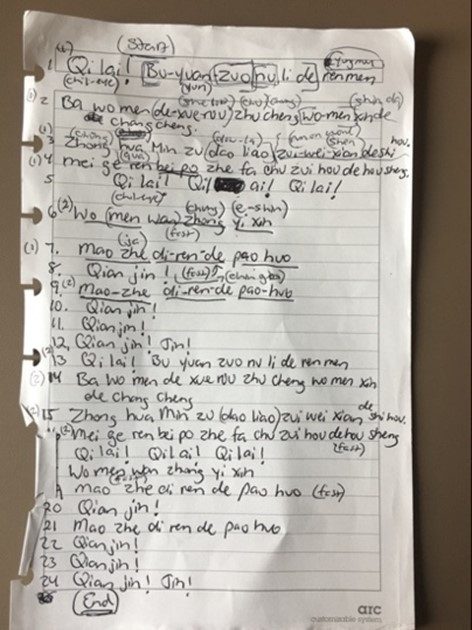 (Start)
1 Qi lai! Bu-yuan zuo nu li de ren men
(chil-eye) (yun)
2 Ba wo men (de-xue-rou) zhu cheng wo-men xin de
chang cheng.
3 Zhong hua Min zu (dao liao) zui-wei-xian de shi hou.
(1) 4 mei ge ren bei po zhe fa chu zui hou de hou sheng.
5 Qi lai! Qi ai! Qi lai!
(chil-eye) (chung) (e-shin)
6 (2) Wo (men wan) zhong yi xin
(fast)
(1) 7. mao zhe di-ren-de pao huo
8. Qian jin!
9. (2) Mao-zhe di-ren-de pao-huo
10. Qian jin!
11. Qian jin!
12. Qian jin! Jin!
13 Qi lai! Bu yuan zuo nu li de ren men
(2) 14 Ba wo men de xue rou zhu cheng wo men xin
de chang cheng
15 Zhong hua Min zu (dao liao) zui wei xian de shi hou.
(2) mei ge ren bei po zhe fa chu zui hou de hou sheng
Qi lai! Qi lai! Qi lai! (fast)
Wo men wan zhong yi xin
mao zhe di ren de pao huo (fast)
20 Qian jin!
21 mao zhe di ren de pao huo
22 Qian jin!
23 Qian jin!
24 Qian jin! Jin!
(End)
arc
customizable system